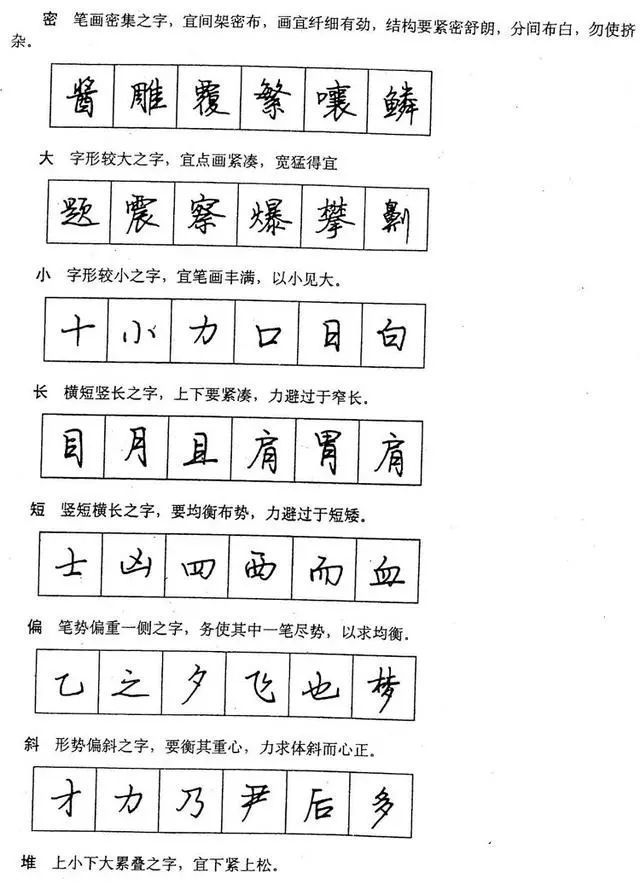 密　笔画密集之字，宜间架密布，画宜纤细有劲，结构要紧密舒朗，分间布白，勿使挤
杂。
酱 雕 覆 繁 嚷 鳞
大　字形较大之字，宜点画紧凑，宽猛得宜
题 震 察 爆 攀 劓
小　字形较小之字，宜笔画丰满，以小见大。
十 小 力 口 日 白
长　横短竖长之字，上下要紧凑，力避过于窄长。
目 月 且 肩 胃 肩
短　竖短横长之字，要均衡布势，力避过于短矮。
士 凶 四 西 而 血
偏　笔势偏重一侧之字，务使其中一笔尽势，以求均衡。
乙 之 夕 飞 也 梦
斜　形势偏斜之字，要衡其重心，力求体斜而心正。
才 力 乃 尹 后 多
堆　上小下大累叠之字，宜下紧上松。